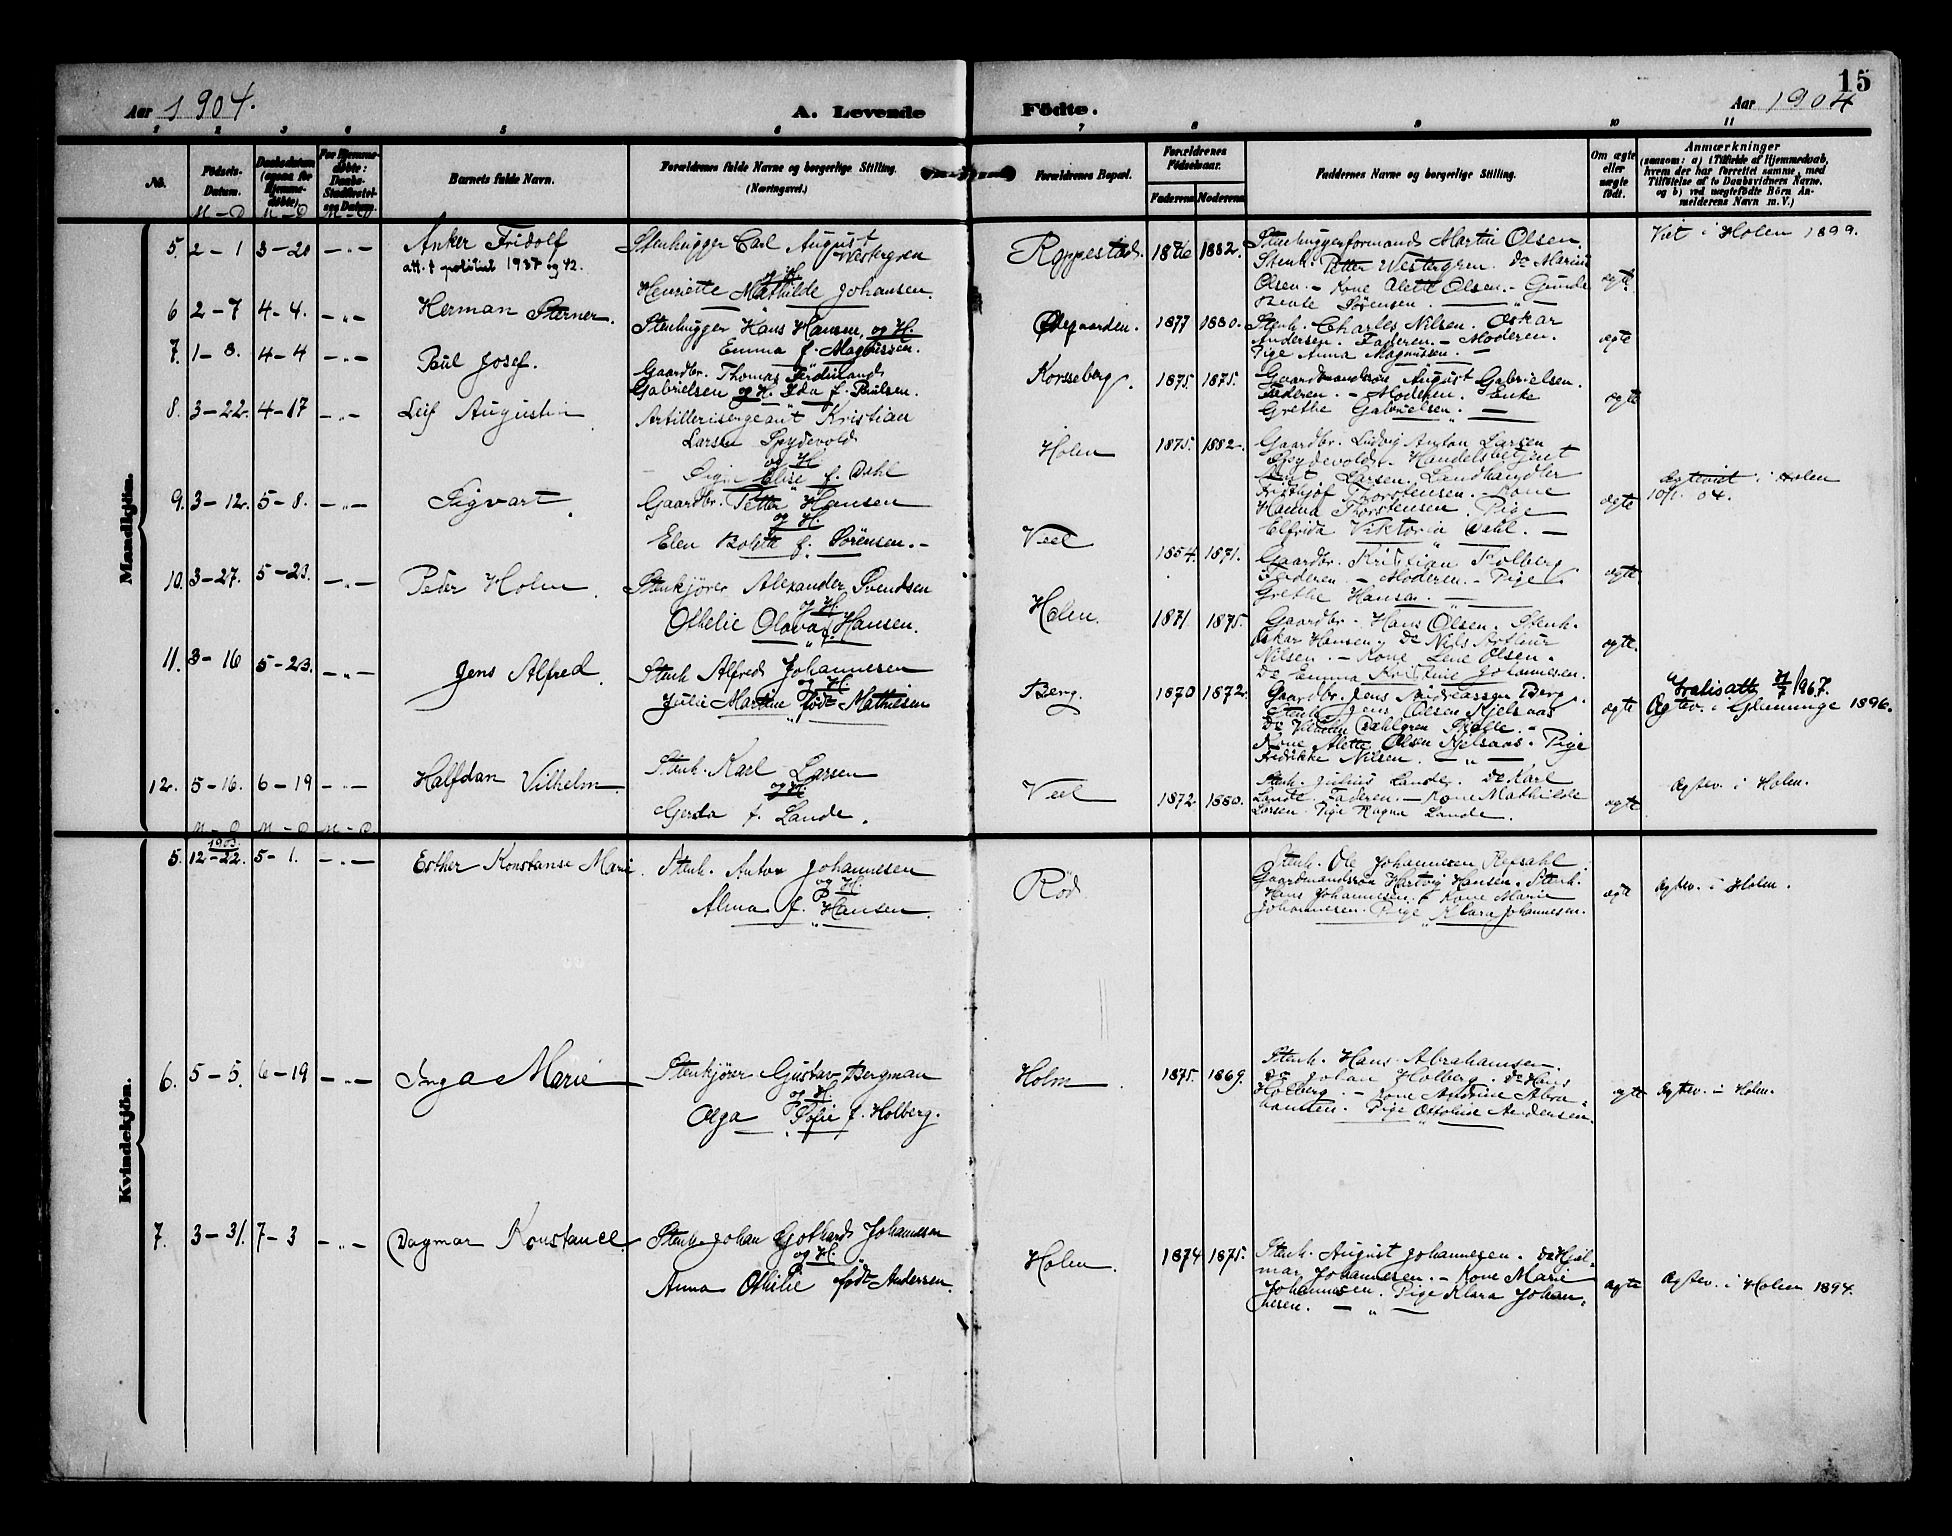 15
Aar 1904.
A. Levende
Födte.
Aar 1904
1 2 3 4 5 6 7 8 9 10 11
No.
Födsels-Datum.
Daabsdatum (ogsaa for Hjemme-döbte).
For Hjemme-döbte: Daabs-Stadfæstel-ses Datum.
Barnets fulde Navn.
Forældrenes fulde Navne og borgerlige Stilling.
(Næringsvei.)
Forældrenes Bopæl.
Forældrenes Födselsaar.
Faderens Moderens
Faddernes Navne og borgerlige Stilling.
Om ægte eller uægte födt.
Anmærkninger
(saasom: a) i Tilfælde af Hjemmedaab, hvem der har forrettet samme, med Tilföielse af to Daabsvidners Navne, og b) ved uægtefödte Börn An-melderens Navn m. V.)
M – D M – D M – D
Mandkjön.
5. 2 – 1 3 – 20 – „ – Anker Fridolf
att. t politiet 1937 og 42.
Stenhugger Carl August
Westergren
og H.
Henriette Mathilde Johansen.
Roppestad. 1876 1882.
Stenhuggerformand Martin Olsen.
Stenh. Petter Westergren. Do Marius
Olsen. – Kone Alette Olsen. – Gunda
Beate Sørensen. – „ –
ægte
Viet i Holen 1899.
6 2 – 7 4 – 4. – „ – Herman Sterner.
Stenhugger Hans Hansen og H.
Emma f. Magnussen.
Ødegaarden. 1877 1880.
Stenh. Charles Nilsen. Oskar
Andersen. Faderen. – Moderen.
Pige Anna Magnussen. –
ægte
7. 1 – 8. 4 – 4 – „ – Paul Josef.
Gaardbr. Thomas Ferdinand
Gabrielsen og H. Ida f. Paulsen.
Korsseberg. 1875. 1875.
August Gabrielsen.
Faderen. – Moderen. Enke
Grethe Gabrielsen. –
ægte
8. 3 – 22. 4 – 17 – „ – Leif Augustin.
Artillerisergeant Kristian
Larsen Spydevold
og H.
Elise f. Dahl
Holen 1875. 1882.
Gaardbr. Ludvig Anton Larsen
Spydevold. Handelsbetjent
Larsen. Landhandler
Fridthjof Thorstensen. – Kone
Hanna Thorstensen. Pige
Elfrida Viktoria Dahl. –
ægte
Ægteviet i Holen
10/1. 04.
9. 3 – 12. 5 – 8. – „ – Sigvart.
Gaardbr. Petter Hansen
og H.
Elen Bolette f. Sørensen. –
Veel 1854. 1871.
Gaardbr. Kristian Kolberg
Faderen – Moderen. – Pige
Grethe Hansen. –
ægte
10. 3 – 27. 5 – 23. – „ – Peder Holm.
Stenkjører Alexander Svendsen
og H.
Othelie Olava f. Hansen.
Holen. 1871 1875.
Gaardbr. Hans Olsen. Stenh.
Oskar Hansen. Do Nils Arthur
Nilsen. – Kone Lene Olsen.
Do Emma Kristine Johannesen.
ægte.
11. 3 – 16 5 – 23. – „ – Jens Alfred.
Stenh Alfred Johannesen
og H.
Julie Martine født Mathiesen
Berg. 1870 1872.
Gaardbr. Jens Andreassen Berg.
Stenh. Jens Olsen Kjelsaas
Do Vilhelm Dahlgren
Kone Alette Olsen Kjelsaas. Pige
Fredrikke Nilsen. – „ –
ægte
Gratisatt. /1967.
Ægtev. i Glemminge 1896.
12. 5 – 16. 6 – 19 – „ – Halfdan Vilhelm.
Stenh. Karl Larsen
og H.
Gerda f. Lande.
Veel 1872 1880.
Stenh. Julius Lande. Do Karl
Lande. Faderen. – Kone Mathilde
Larsen. Pige Ragna Lande.
ægte
Ægtev. i Holen.
M – D M – D M – D
Kvindekjön.
1903.
5. 12 – 22. 5 – 1. – „ – Esther Konstanse Marie.
Stenh. Anton Johannesen
og H.
Alma f. Hansen.
Röd.
Stenh. Ole Johannesen Repdahl
Gaardmandssön Hartvig Hansen. Stenh.
Hans Johannesen. Kone Marie
Johannesen. Pige Klara Johannesen.
ægte
Ægtev. i Holen.
6. 5 – 5. 6 – 19 – „ – Inga Marie
Stenkjører Gustav Bergman
og H
Olga Sofie f. Holberg.
Holm. 1875. 1869.
Stenh. Hans Abrahamsen.
Do Johan Holberg. Do Hans
Holberg. – Kone Andrine Abra-
hamsen. Pige Ottoline Andersen.
ægte
Ægtev. i Holen.
7. 3 – 31. 7 – 3 – „ – Dagmar Konstance.
Stenh. Johan Gothard Johannesen
og H.
Anna Othilie født Andersen.
Holen. 1874 1875.
Stenh. August Johannesen. Do Hjal-
mar Johannesen. – Kone Marie
Johannesen. Pige Klara Johan-
nesen. – „ –
ægte
Ægtev. i Holen 1894.